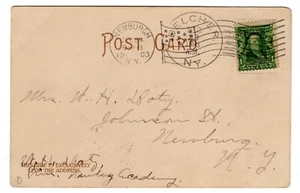 POST CARD
NEWBURGH
N.Y.
N.Y.
Mrs. W. H. Doty,
Johnson St.
Newburg
N. Y.
THIS SIDE IS EXCLUSIVELY
FOR THE ADDRESS.
Newburg Academy.